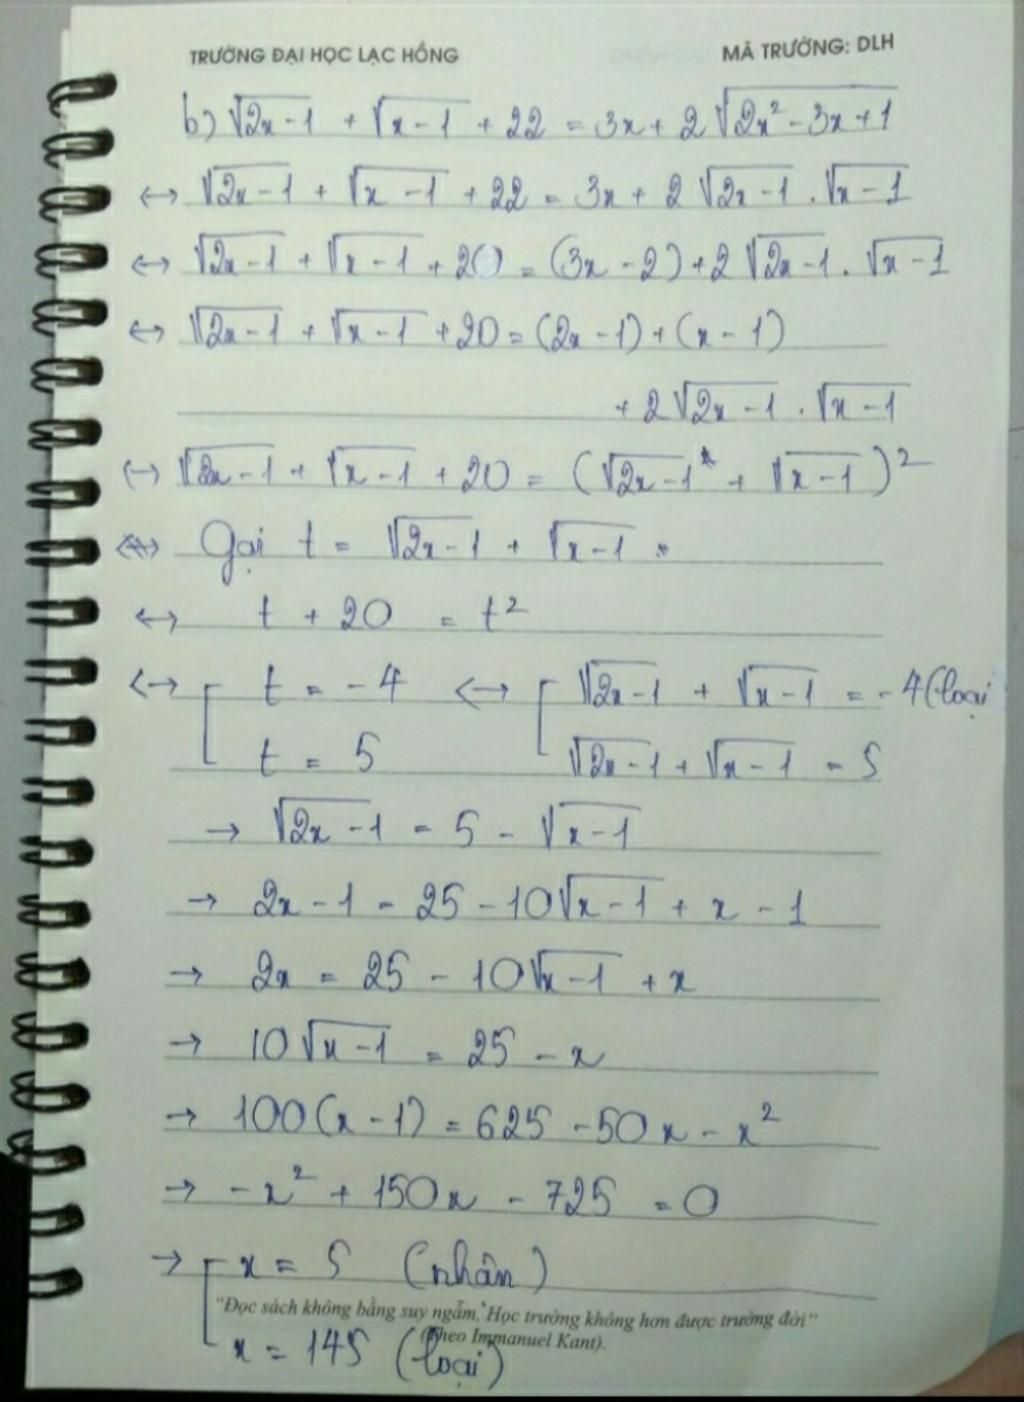 TRƯỜNG ĐẠI HỌC LẠC HỒNG MÃ TRƯỜNG: DLH
b) √(2x-1) + √(x-1) + 22 = 3x + 2√(2x² - 3x + 1)
↔ √(2x-1) + √(x-1) + 22 = 3x + 2√(2x-1) . √(x-1)
↔ √(2x-1) + √(x-1) + 20 = (3x - 2) + 2√(2x-1) . √(x-1)
↔ √(2x-1) + √(x-1) + 20 = (2x - 1) + (x - 1)
+ 2√(2x-1) . √(x-1)
↔ √(2x-1) + √(x-1) + 20 = (√(2x-1) + √(x-1))²
↔ Gọi t = √(2x-1) + √(x-1) .
↔ t + 20 = t²
↔ [ t = -4 ↔ [ √(2x-1) + √(x-1) = -4 (loại
t = 5 √(2x-1) + √(x-1) = 5
→ √(2x-1) = 5 - √(x-1)
→ 2x - 1 = 25 - 10√(x-1) + x - 1
→ 2x = 25 - 10√(x-1) + x
→ 10√(x-1) = 25 - x
→ 100(x - 1) = 625 - 50x - x²
→ -x² + 150x - 725 = 0
→ [ x = 5 (nhân)
"Đọc sách không bằng suy ngẫm, Học trường không hơn được trường đời"
(Theo Immanuel Kant).
x = 145 (loại)